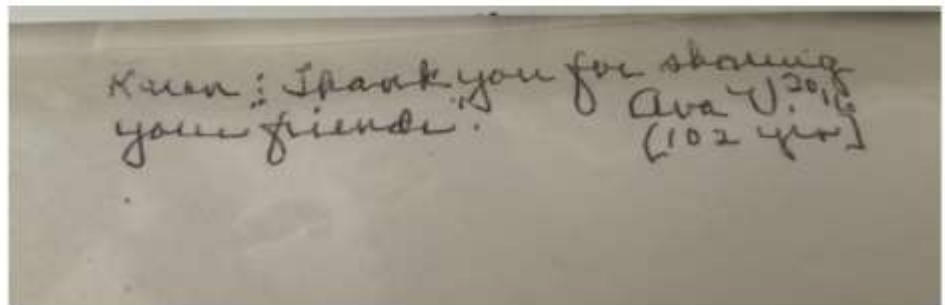 Kuen: Thank you for sharing
your "friends". Ava V. 2016
(102 yrs)